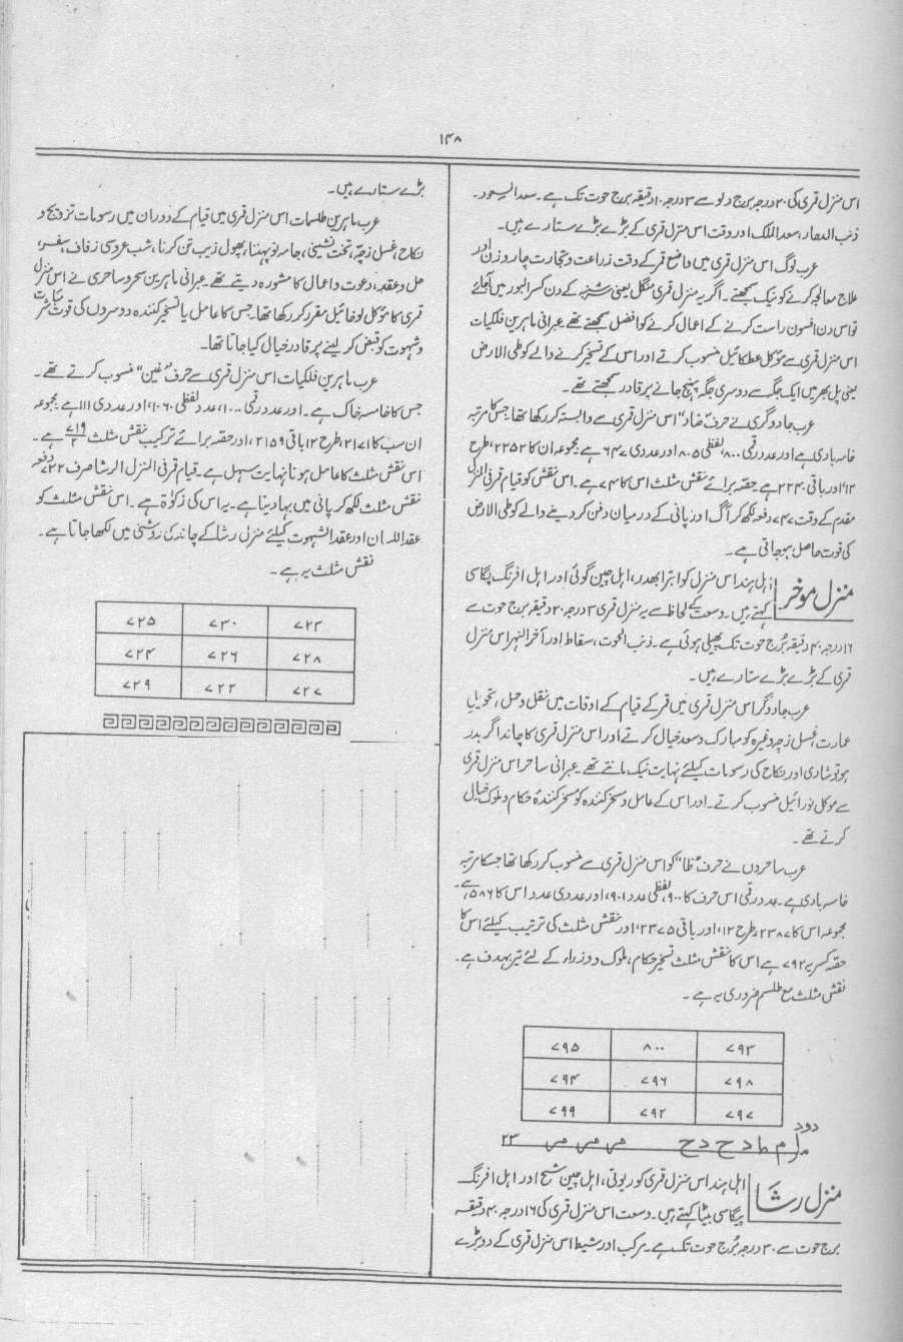 ۱۴۸
اس منزل قمری کی ۲۰ درجہ برج دلو سے ۳ درجہ ۱۰ دقیقہ برج حوت تک ہے۔ سعد السعود۔
ذنب الدھار، سعد الملک اور وقت اس منزل قمری کے بڑے بڑے ستارے ہیں۔
عرب لوگ اس منزل قمری میں واضع قمر کے وقت زراعت و تجارت چار روزن اور
علاج معالجہ کرنے کو نیک سمجھتے۔ اگر یہ منزل قمری منگل یعنی شنبہ کے دن کسر البور میں آجائے
تو اس دن افسون راست کرنے کے اعمال کرنے کو افضل سمجھتے تھے عبرانی ماہرین فلکیات
اس منزل قمری سے مؤکل عطکائیل منسوب کرتے اور اس کے تسخیر کرنے والے کو طی الارض
یعنی پل بھر میں ایک جگہ سے دوسری جگہ پہنچ جانے پر قادر سمجھتے تھے۔
عرب جادوگری نے حرف "ضاد" اس منزل قمری سے وابستہ کر رکھا تھا جس کا مرتبہ
خامسہ بادی ہے اور عدد رقمی ۸۰۰، لفظی ۸۰۵ اور عددی ۶۴۷ ہے مجموعہ ان کا ۲۲۵۲، طرح
۱۲، اور باقی ۲۲۴۰ ہے حقہ برائے نقش مثلث اس کا ۷۴۷ ہے۔ اس نقش کو قیام قمر فی المنزل
مقدم کے وقت ۷۴۷ دفعہ لکھ کر آگ اور پانی کے درمیان دفن کر دینے والے کو طی الارض
کی قوت حاصل ہو جاتی ہے۔
منزل موخر
اہل ہند اس منزل کو اترا بھدر، اہل چین گوئی اور اہل افرنگ پگاسی
کہتے ہیں۔ وسعت کے لحاظ سے یہ منزل قمری ۳ درجہ ۲۰ دقیقہ برج حوت سے
۱۶ درجہ ۴۰ دقیقہ برج حوت تک پھیلی ہوئی ہے۔ ذنب الحوت، سقاط اور آخر النہر اس منزل
قمری کے بڑے بڑے ستارے ہیں۔
عرب جادوگر اس منزل قمری میں قمر کے قیام کے اوقات میں نقل و حمل، تحویل
عمارت، غسل زچہ وغیرہ کو مبارک و سعد خیال کرتے اور اس منزل قمری کا چاند اگر بدر
ہو تو شادی اور نکاح کی رسومات کیلئے نہایت نیک مانتے تھے۔ عبرانی ساحر اس منزل قمری
سے موکل نورائیل منسوب کرتے۔ اور اس کے عامل و مسخر کنندہ کو مسخر کنندہ حکام و ملوک خیال
کرتے تھے۔
عرب ساحروں نے حرف "ظا" کو اس منزل قمری سے منسوب کر رکھا تھا جسکا مرتبہ
خامسہ بادی ہے۔ عدد رقمی اس حرف کا ۹۰۰، لفظی عدد ۹۰۱، اور عددی عدد اس کا ۵۸۶ ہے۔
مجموعہ اس کا ۲۳۸۷، طرح ۱۲، اور باقی ۲۳۷۵، اور نقش مثلث کی ترتیب کیلئے اس کا
حقہ کسریہ ۷۹۲ ہے اس کا نقش مثلث تسخیر حکام، ملوک و وزراء کے لئے تیر بہدف ہے۔
نقش مثلث مع طلسم ضروری یہ ہے۔
۷۹۵ ۸۰۰ ۷۹۳
۷۹۴ ۷۹۶ ۷۹۸
۷۹۹ ۷۹۲ ۷۹۷
منزل رشا
اہل ہند اس منزل قمری کو ریوتی، اہل چین شیح اور اہل افرنگ
پیگاسی بیٹا کہتے ہیں۔ وسعت اس منزل قمری کی ۱۶ درجہ ۴۰ دقیقہ
برج حوت سے ۳۰ درجہ برج حوت تک ہے۔ مرکب اور رشیط اس منزل قمری کے دو بڑے
بڑے ستارے ہیں۔
عرب ماہرین طلسمات اس منزل قمری میں قیام کے دوران میں رسومات تزویج و
نکاح، غسل زچہ، تخت نشینی، جامہ نو پہننا، پھول زیب تن کرنا، شب عروسی زفاف، سفر،
حل و عقد، دعوت و اعمال کا مشورہ دیتے تھے۔ عبرانی ماہرین سحر و ساحری نے اس منزل
قمری کا موکل لوخائیل مقرر کر رکھا تھا۔ جس کا عامل یا تسخیر کنندہ دوسروں کی قوت
و شہوت کو قبض کر لینے پر قادر خیال کیا جاتا تھا۔
عرب ماہرین فلکیات اس منزل قمری سے حرف "غین" منسوب کرتے تھے۔
جس کا خامسہ خاک ہے۔ اور عدد رقمی ۱۰۰۰، عدد لفظی ۱۰۶۰، اور عددی ۱۱۱ ہے مجموعہ
ان سب کا ۲۱۷۱، طرح ۱۲ باقی ۲۱۵۹، اور حقہ برائے ترکیب نقش مثلث ۷۱۹/۳ ہے۔
اس نقش مثلث کا عامل ہونا نہایت سہل ہے۔ قیام قمر فی المنزل الرشا صرف ۷۲۲ دفعہ
نقش مثلث لکھ کر پانی میں بہا دینا ہے۔ یہ اس کی زکوٰۃ ہے۔ اس نقش مثلث کو
عقد اللسان اور عقد الشہوت کیلئے منزل رشا کے چاند کی روشنی میں لکھا جاتا ہے۔
نقش مثلث یہ ہے۔
۷۲۵ ۷۳۰ ۷۲۳
۷۲۴ ۷۲۶ ۷۲۸
۷۲۹ ۷۲۲ ۷۲۷